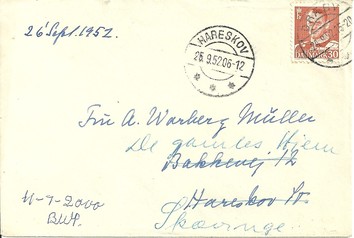 26 Sept. 1952.
HARESKOV
26.9.52 06-12
DANMARK 30
Fru A. Warberg Müller
De gamles Hjem
Bakkevej 12
Hareskov St.
11-9-2000
BWP.